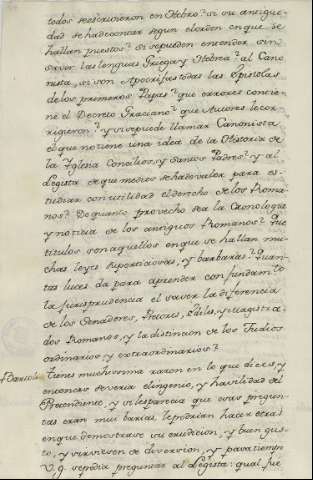 todos se escrivieron en Hebreo? si su antigue-
dad se ha de contar segun el orden en que se
hallan puestos? si se pueden entender sin
saver las lenguas Griega y Hebrea? al Cano-
nista, si son Apocrifas todas las Epistolas
de los primeros Papas? que errores contie-
ne el Decreto Graciano? que Autores le cor-
rigieron? y si se puede llamar Canonista
el que no tiene una idea de la Historia de
la Yglesia Concilios, y Santos Padres? y al
Legista de que medios se ha de valer para es-
tudiar con utilidad el derecho de los Roma-
nos? De quanto provecho sea la Cronologia
y noticia de los antiguos Romanos? Que
titulos son aquellos en que se hallan mu-
chas leyes supersticiosas, y barbaras? Quan-
tas luces da para aprender con fundamto
la jurisprudencia el saver la diferencia
de los Senadores, Pretores, Ediles, y Magistra-
dos Romanos, y la distincion de los Judios
ordinarios y extraordinarios?
Tienes muchissima razon en lo que dices, y
entonces se veria el ingenio, y havilidad del
Pretendiente, y si les parecia que esas pregun-
tas eran mui bastas, le podrian hacer otras
en que demostrase su erudicion, y buen gus-
to, y sirviesen de diversion, y pasatiempo
V.g. se podia preguntar al Legista: qual fue